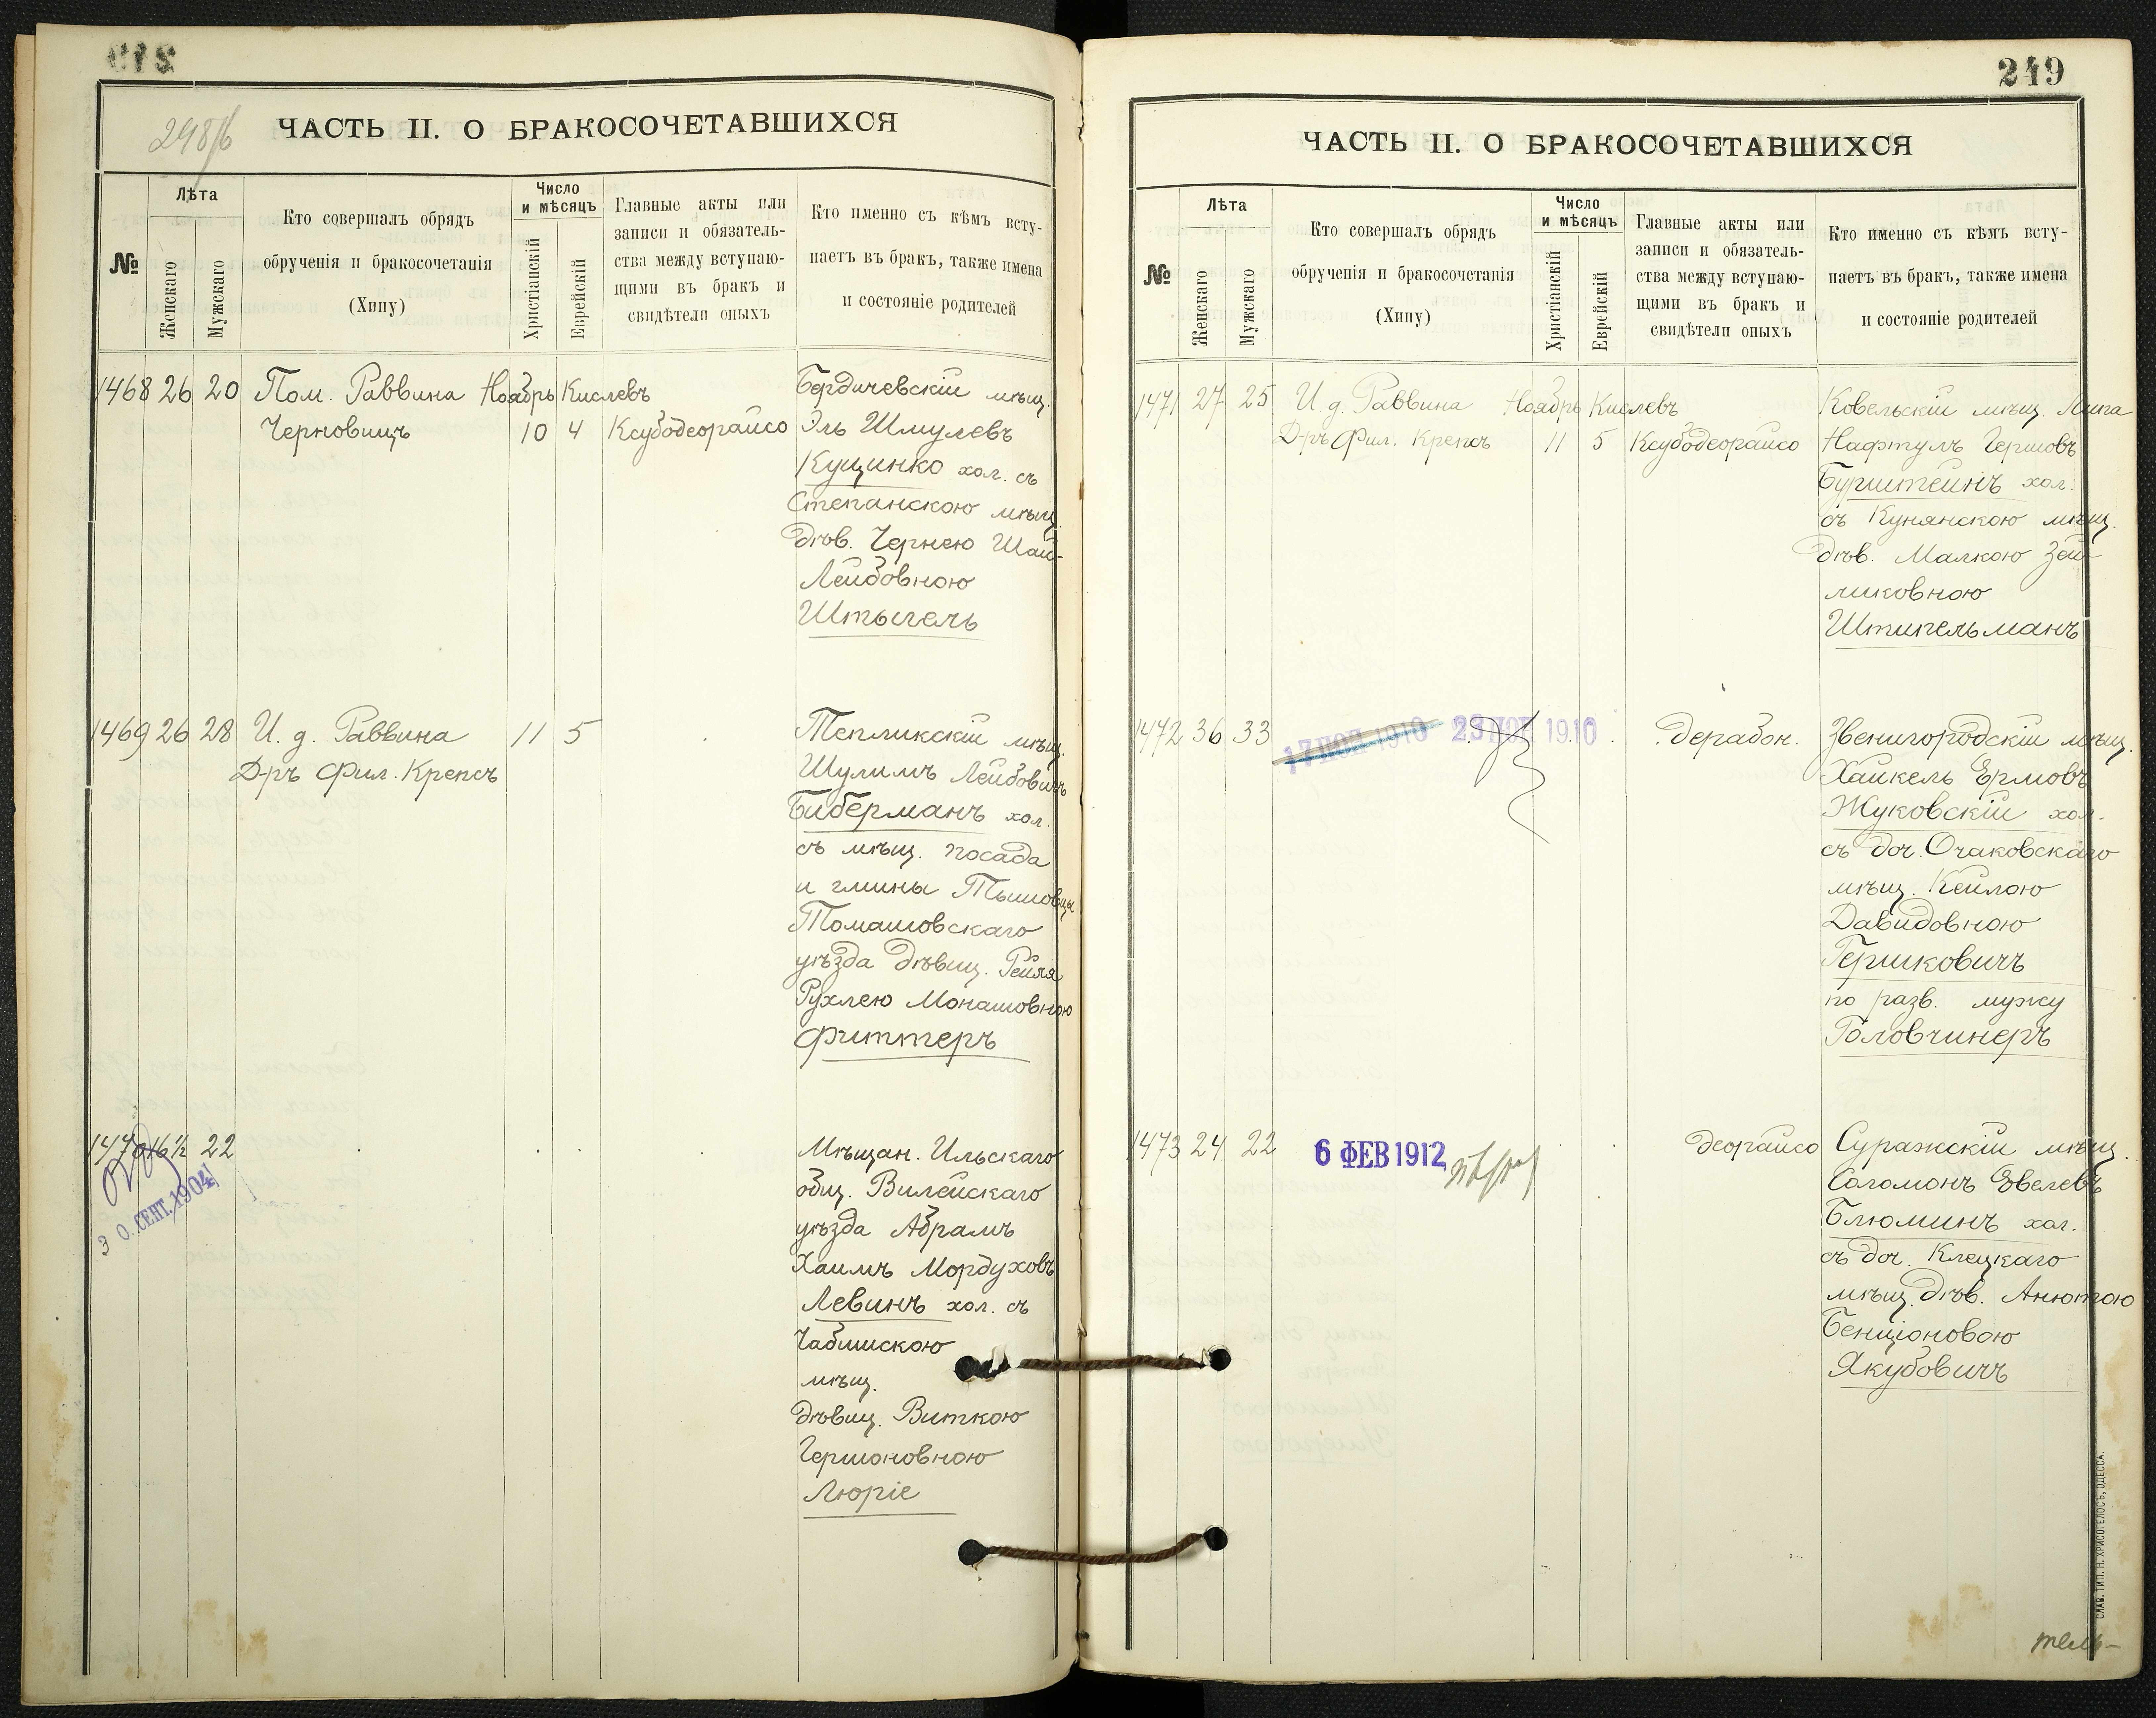 248/б
ЧАСТЬ II. О БРАКОСОЧЕТАВШИХСЯ
№
Лѣта
Женскаго
Мужскаго
Кто совершалъ обрядъ
обрученія и бракосочетанія
(Хипу)
Число
и мѣсяцъ
Христіанскій
Еврейскій
Главные акты или
записи и обязатель-
ства между вступаю-
щими въ бракъ и
свидѣтели оныхъ
Кто именно съ кѣмъ всту-
паетъ въ бракъ, также имена
и состояніе родителей
1468 26 20 Пом. Раввина Ноябрь Кислевъ
Черновицъ 10 4 Ксубодеорайсо
Бердичевскій мѣщ.
Эль Шмулевъ
Кущинко хол. съ
Степанскою мѣщ.
дѣв. Чернею Шая-
Лейбовною
Штысель
1469 26 28 И. д. Раввина 11 5
Д-ръ Фил. Крепсъ
Тепликскій мѣщ.
Шулимъ Лейбовичъ
Биберманъ хол.
съ мѣщ. посада
и гмины Тышовцы
Томашовскаго
уѣзда дѣвиц. Рейзя
Рухлею Монашовною
Фиттеръ
1470 16 ½ 22
30 СЕНТ. 1904
Мѣщан. Ильскаго
общ. Вилейскаго
уѣзда Абрамъ
Хаимъ Мордуховъ
Левинъ хол. съ
мѣщ.
дѣвиц. Виткою
Гершоновною
Люріе
249
ЧАСТЬ II. О БРАКОСОЧЕТАВШИХСЯ
№
Лѣта
Женскаго
Мужскаго
Кто совершалъ обрядъ
обрученія и бракосочетанія
(Хипу)
Число
и мѣсяцъ
Христіанскій
Еврейскій
Главные акты или
записи и обязатель-
ства между вступаю-
щими въ бракъ и
свидѣтели оныхъ
Кто именно съ кѣмъ всту-
паетъ въ бракъ, также имена
и состояніе родителей
1471 27 25 И. д. Раввина Ноябрь Кислевъ
Д-ръ Фил. Крепсъ 11 5 Ксубодеорайсо
Ковельскій мѣщ.
Нафтулъ Гершовъ
Бурштейнъ хол.
съ Кунянскою мѣщ.
дѣв. Малкою Зей-
ликовною
Штипельманъ
1472 36 33 17 НОЯ 1910 23 НОЯ 1910 дерабон.
Звенигородскій мѣщ.
Хаикель Ермовъ
Жуковскій хол.
съ доч. Очаковскаго
мѣщ. Кейлою
Давидовною
Гершковичъ
по разв. мужу
Головчинеръ
1473 24 22 6 ФЕВ 1912 деорайсо
Суражскій мѣщ.
Соломонъ Эвелевъ
Блюминъ хол.
съ доч. Клецкаго
мѣщ. дѣв. Анютою
Бенціоновою
Якубовичъ
СЛАВ. ТИП. Н. ХРИСОГЕЛОСЪ, ОДЕССА.